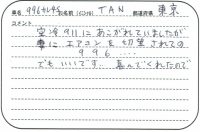 車名 996 C4S お名前(ペンネーム) TAN 都道府県 東京
コメント
空冷911にあこがれていましたが
妻に エアコンを切望されての
996…
でもいいです。喜んでくれたので